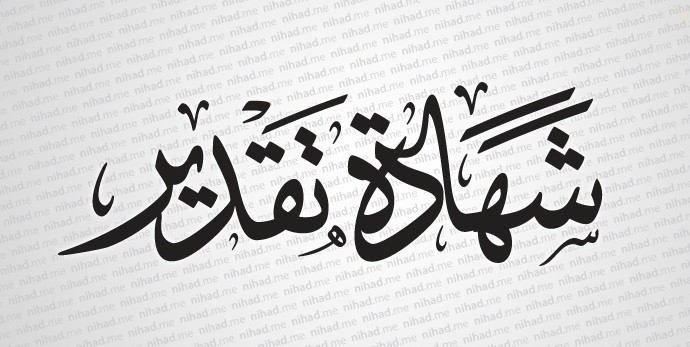 شهادة تقدير
nihad.me